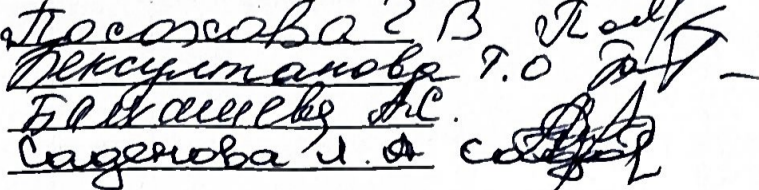 Посохова Г В
Бексултанова Т.О
Бакашева А.С.
Саденова Л.А